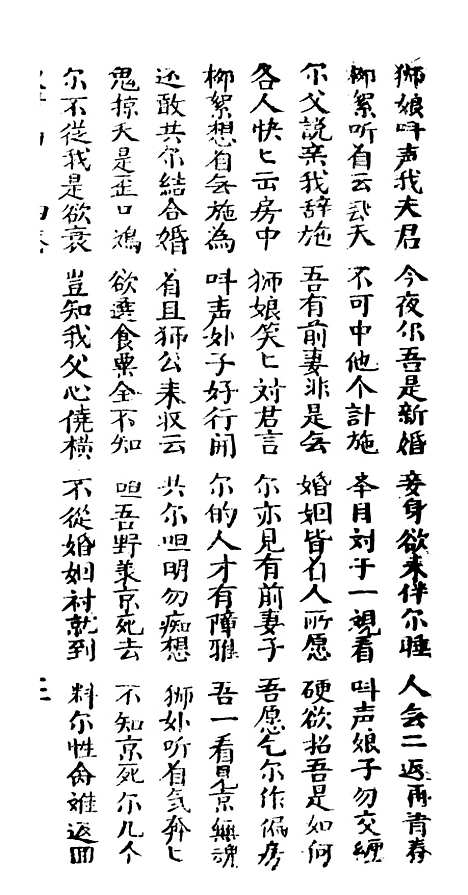 狮娘呌声我夫君 今夜尔吾是新婚 妾身欲来伴尔睡 人会二返再青春
柳絮听着云飛天 不可中他个計施 本月対于一覌看 呌声娘子勿交缠
尔父說亲我辞施 吾有前妻非是会 婚姻皆有人所愿 硬欲招吾是如何
各人快匕出房中 狮娘笑匕対君言 尔亦見有前妻子 吾愿乞尔作偏房
柳絮想着会施為 呌声妙子好行開 尔的人才有障雅 吾一看見京無魂
还敢共尔結合婚 着且狮公来收云 共尔呾明勿痴想 狮妙听着氣奔匕
鬼掠夭是歪口鴻 欲選食粟全不知 呾吾野美京死去 不知京死尔几个
尔不從我是欲衰 豈知我父心僥橫 不從婚姻衬就到 料尔性命难返回